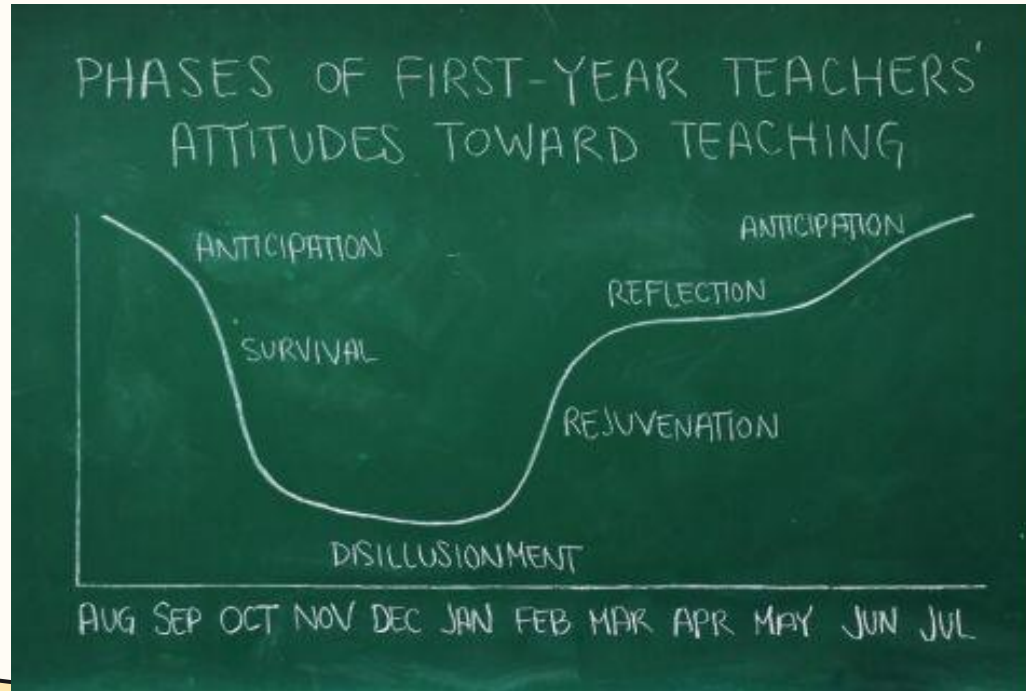 PHASES OF FIRST-YEAR TEACHERS'
ATTITUDES TOWARD TEACHING
ANTICIPATION
SURVIVAL
DISILLUSIONMENT
REJUVENATION
REFLECTION
ANTICIPATION
AUG SEP OCT NOV DEC JAN FEB MAR APR MAY JUN JUL